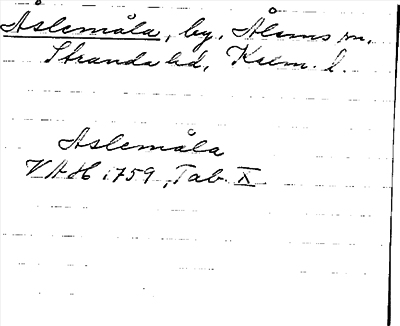 Åslemåla, by, Ålems sn,
Stranda hd, Kalm. l.
Aslemåla
VAH 1759, Tab. X